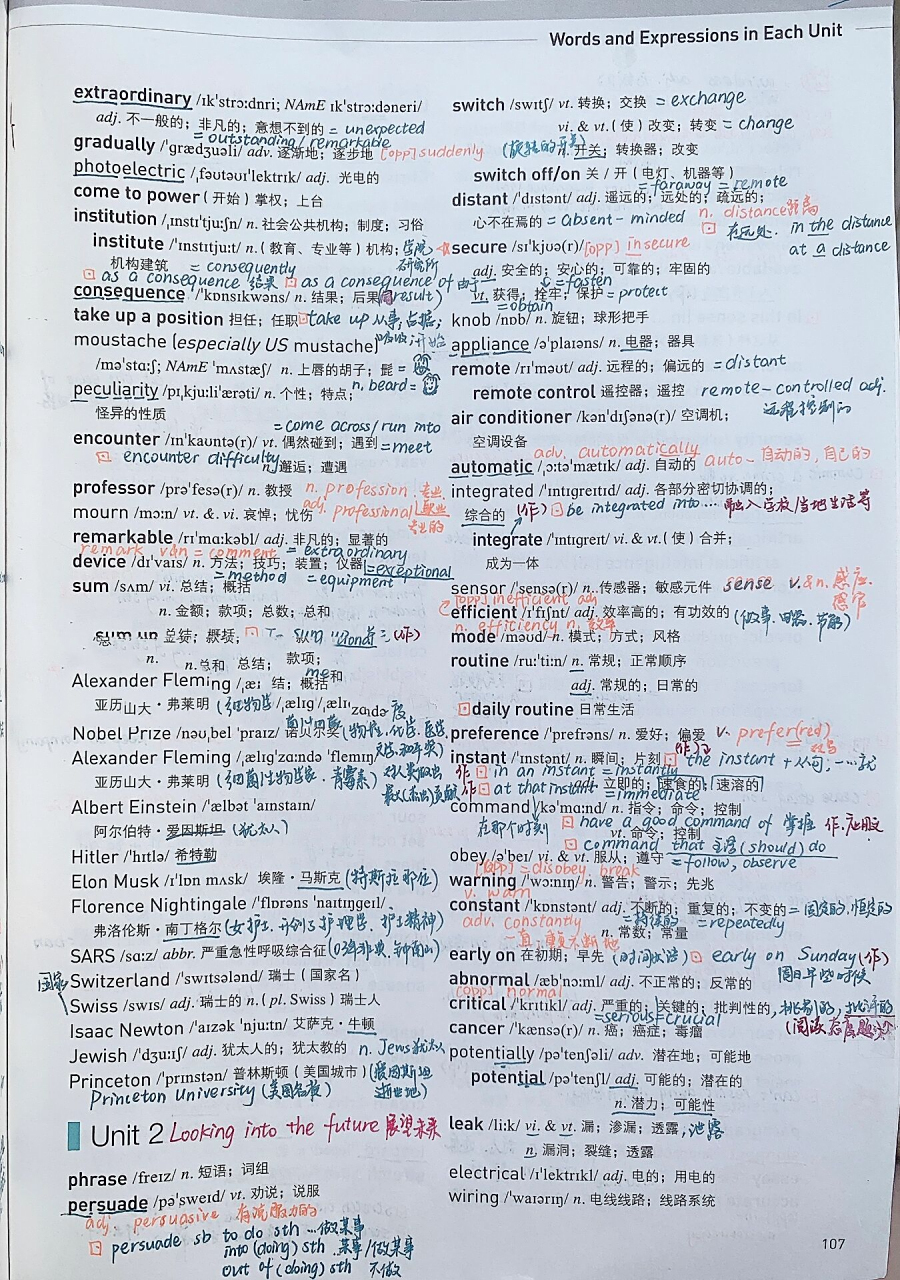 Words and Expressions in Each Unit
extraordinary /ɪkˈstrɔːdnri; NAmE ɪkˈstrɔːdəneri/
adj. 不一般的；非凡的；意想不到的 = unexpected
= outstanding / remarkable
gradually /ˈɡrædʒuəli/ adv. 逐渐地；逐步地 [opp] suddenly
photoelectric /ˌfəʊtəʊɪˈlektrɪk/ adj. 光电的
come to power (开始) 掌权；上台
institution /ˌɪnstɪˈtjuːʃn/ n. 社会公共机构；制度；习俗
institute /ˈɪnstɪtjuːt/ n. (教育、专业等) 机构；学院
研究所
机构建筑 = consequently
as a consequence 结果 as a consequence of 由于
consequence /ˈkɒnsɪkwəns/ n. 结果；后果 (同 result)
take up a position 担任；任职 take up 从事；占据；
吸收；开始
moustache (especially US mustache)
/məˈstɑːʃ; NAmE ˈmʌstæʃ/ n. 上唇的胡子；髭 =
n. beard =
peculiarity /pɪˌkjuːliˈærəti/ n. 个性；特点；
怪异的性质
= come across / run into
encounter /ɪnˈkaʊntə(r)/ vt. 偶然碰到；遇到 = meet
encounter difficulty n. 邂逅；遭遇
professor /prəˈfesə(r)/ n. 教授 n. profession 专业
mourn /mɔːn/ vt. & vi. 哀悼；忧伤 adj. professional 职业
专业的
remarkable /rɪˈmɑːkəbl/ adj. 非凡的；显著的
remark v&n = comment = extraordinary
device /dɪˈvaɪs/ n. 方法；技巧；装置；仪器 = exceptional
= method = equipment
sum /sʌm/ vi. 总结；概括
n. 金额；款项；总数；总和
sum up 总结；概括
n. n.总和 总结； 款项；
Alexander Fleming
亚历山大・弗莱明
Nobel Prize /nəʊˌbel ˈpraɪz/ 诺贝尔奖
Alexander Fleming /ˌælɪɡˈzɑːndə ˈflemɪŋ/
亚历山大・弗莱明 (细菌生物学家・青霉素)
Albert Einstein /ˈælbət ˈaɪnstaɪn/
阿尔伯特・爱因斯坦 (犹太人)
Hitler /ˈhɪtlə/ 希特勒
Elon Musk /ɪˈlɒn mʌsk/ 埃隆・马斯克 (特斯拉那位)
Florence Nightingale /ˈflɒrəns ˈnaɪtɪŋɡeɪl/
弗洛伦斯・南丁格尔
SARS /sɑːz/ abbr. 严重急性呼吸综合征
国家
Switzerland /ˈswɪtsələnd/ 瑞士（国家名）
Swiss /swɪs/ adj. 瑞士的 n. (pl. Swiss) 瑞士人
Isaac Newton /ˈaɪzək ˈnjuːtn/ 艾萨克・牛顿
Jewish /ˈdʒuːɪʃ/ adj. 犹太人的；犹太教的 n. Jews 犹太人
Princeton /ˈprɪnstən/ 普林斯顿（美国城市）(爱因斯坦
逝世地)
Princeton University (美国名校)
Unit 2 Looking into the future 展望未来
phrase /freɪz/ n. 短语；词组
persuade /pəˈsweɪd/ vt. 劝说；说服
adj. persuasive 有说服力的
persuade sb to do sth …做某事
into (doing) sth 某事/做某事
out of (doing) sth 不做
switch /swɪtʃ/ vt. 转换；交换 = exchange
vi. & vt. (使) 改变；转变 = change
(旋转的开关) n. 开关；转换器；改变
switch off/on 关 / 开 (电灯、机器等)
= faraway = remote
distant /ˈdɪstənt/ adj. 遥远的；远处的；疏远的；
心不在焉的 = absent-minded n. distance 距离
在远处 in the distance
at a distance
secure /sɪˈkjʊə(r)/ [opp] insecure
adj. 安全的；安心的；可靠的；牢固的
= fasten
vt. 获得；拴牢；保护 = protect
= obtain
knob /nɒb/ n. 旋钮；球形把手
appliance /əˈplaɪəns/ n. 电器；器具
remote /rɪˈməʊt/ adj. 远程的；偏远的 = distant
remote control 遥控器；遥控 remote-controlled adj.
远程控制的
air conditioner /kənˈdɪʃənə(r)/ 空调机；
空调设备
adv. automatically
automatic /ˌɔːtəˈmætɪk/ adj. 自动的 auto- 自动的，自己的
integrated /ˈɪntɪɡreɪtɪd/ adj. 各部分密切协调的；
综合的 (作) be integrated into … 融入学校/当地生活等
integrate /ˈɪntɪɡreɪt/ vi. & vt. (使) 合并；
成为一体
sensor /ˈsensə(r)/ n. 传感器；敏感元件 sense v.&n. 感应
感官
[opp] inefficient adj
efficient /ɪˈfɪʃnt/ adj. 效率高的；有功效的
n. efficiency n. 效率
mode /məʊd/ n. 模式；方式；风格
routine /ruːˈtiːn/ n. 常规；正常顺序
adj. 常规的；日常的
daily routine 日常生活
preference /ˈprefrəns/ n. 爱好；偏爱 v. prefer(red)
双写
instant /ˈɪnstənt/ n. 瞬间；片刻 the instant + 从句，一…就
作 in an instant = instantly
作 at that instant adj. 立即的；速食的；速溶的
= immediate
command /kəˈmɑːnd/ n. 指令；命令；控制
在那个时刻 have a good command of 掌握 作.应用文
vt. 命令；控制
command that 主语 (should) do
obey /əˈbeɪ/ vi. & vt. 服从；遵守 = follow, observe
[opp] = disobey, break
warning /ˈwɔːnɪŋ/ n. 警告；警示；先兆
v. warn
constant /ˈkɒnstənt/ adj. 不断的；重复的；不变的 = 固定的，恒定的
adv. constantly = 持续的 = repeatedly
n. 常数；常量
early on 在初期；早先 (时间状语) early on Sunday (作)
周日早些时候
abnormal /æbˈnɔːml/ adj. 不正常的；反常的
[opp] normal
critical /ˈkrɪtɪkl/ adj. 严重的；关键的；批判性的，挑剔的，批评的
= serious = crucial (阅读态度题)
cancer /ˈkænsə(r)/ n. 癌；癌症；毒瘤
potentially /pəˈtenʃəli/ adv. 潜在地；可能地
potential /pəˈtenʃl/ adj. 可能的；潜在的
n. 潜力；可能性
leak /liːk/ vi. & vt. 漏；渗漏；透露，泄露
n. 漏洞；裂缝；透露
electrical /ɪˈlektrɪkl/ adj. 电的；用电的
wiring /ˈwaɪərɪŋ/ n. 电线线路；线路系统
107